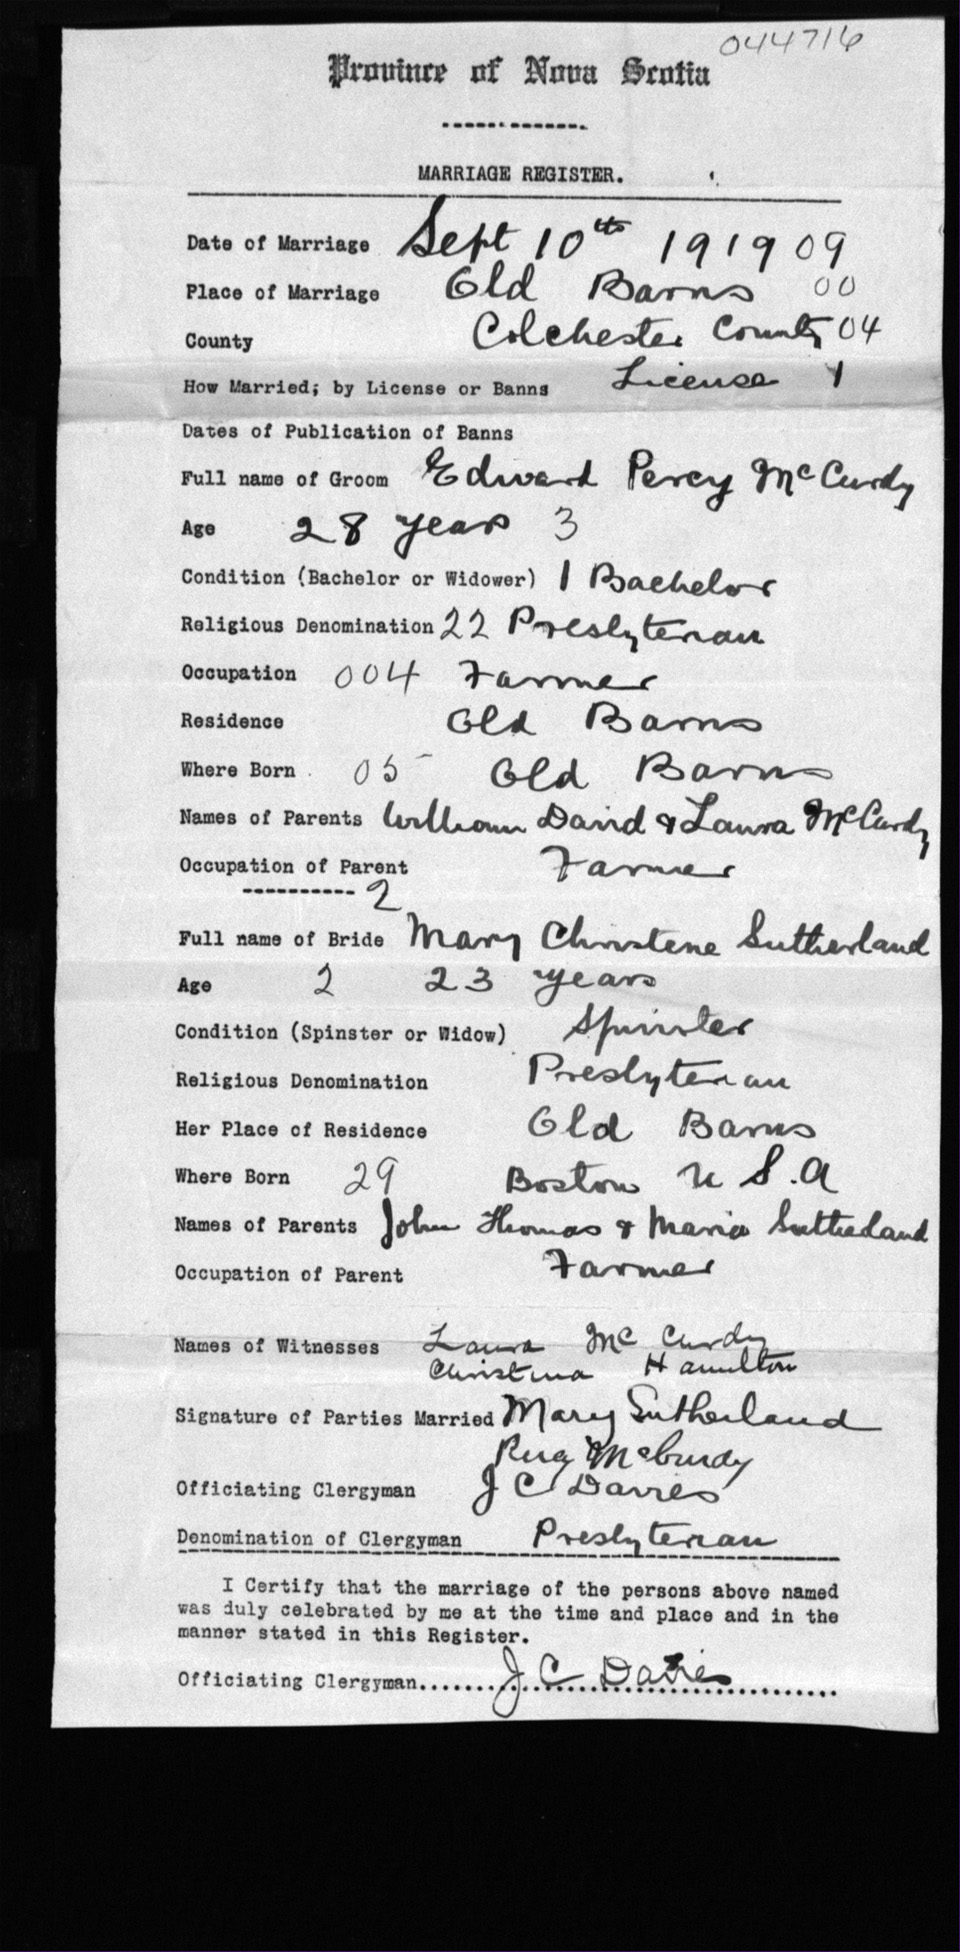 044716
Province of Nova Scotia
MARRIAGE REGISTER.
Date of Marriage Sept 10th 1919 09
Place of Marriage Old Barns 00
County Colchester County 04
How Married; by License or Banns License 1
Dates of Publication of Banns
Full name of Groom Edward Percy McCurdy
Age 28 years 3
Condition (Bachelor or Widower) 1 Bachelor
Religious Denomination 22 Presbyterian
Occupation 004 Farmer
Residence Old Barns
Where Born 05 Old Barns
Names of Parents William David & Laura McCurdy
Occupation of Parent Farmer
---------- 2
Full name of Bride Mary Christene Sutherland
Age 2 23 years
Condition (Spinster or Widow) Spinster
Religious Denomination Presbyterian
Her Place of Residence Old Barns
Where Born 29 Boston U.S.A
Names of Parents John Thomas & Maria Sutherland
Occupation of Parent Farmer
Names of Witnesses Laura McCurdy
Christina Hamilton
Signature of Parties Married Mary Sutherland
McCurdy
Officiating Clergyman J C Davies
Denomination of Clergyman Presbyterian
I Certify that the marriage of the persons above named
was duly celebrated by me at the time and place and in the
manner stated in this Register.
Officiating Clergyman.......J C Davies